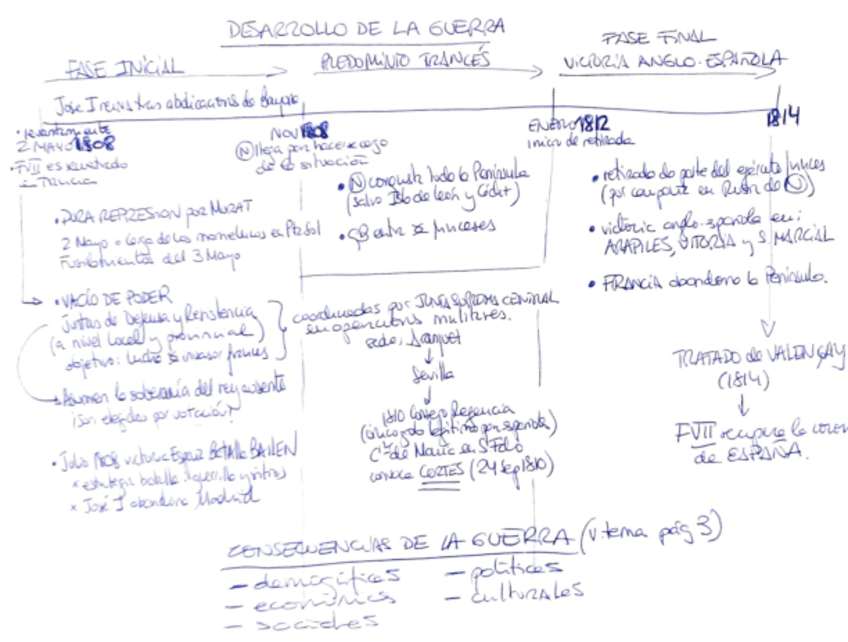 DESARROLLO DE LA GUERRA
FASE INICIAL
PREDOMINIO FRANCÉS
FASE FINAL
VICTORIA ANGLO-ESPAÑOLA
José I reina tras abdicaciones de Bayona
• levantamiento
2 MAYO 1808
• FVII es secuestrado
en Francia
NOV 1808
(N) llega para hacerse cargo
de la situación
ENERO 1812
inicio de retirada
1814
• DURA REPRESION por MURAT
2 Mayo a cargo de los mamelucos en Pta Sol
Fusilamientos del 3 Mayo
• VACÍO DE PODER
Juntas de Defensa y Resistencia
(a nivel local y provincial)
objetivo: lucha invasor francés
Asumen la soberanía del rey ausente
¡Son elegidas por votación!
• Julio 1808 victoria Espaz BATALLA BAILEN
x estrategia batalla guerrilla y sitios
x José I abandona Madrid
• (N) conquista toda la Península
(salvo Isla de León y Cádiz)
• GB entra franceses
coordinadas por JUNTA SUPREMA CENTRAL
en operaciones militares.
sede: Aranjuez
Sevilla
1810 Consejo Regencia
(único legítimo por española)
en S Fdo
convoca CORTES (24 sep 1810)
• retirada de parte del ejército francés
(por campaña en Rusia de (N))
• victoria anglo-española en:
ARAPILES, VITORIA y S. MARCIAL
• FRANCIA abandona la Península.
TRATADO de VALENÇAY
(1814)
FVII recupera la corona
de ESPAÑA.
CONSECUENCIAS DE LA GUERRA (v. tema pág 3)
– demográficas
– económicas
– sociales
– políticas
– culturales